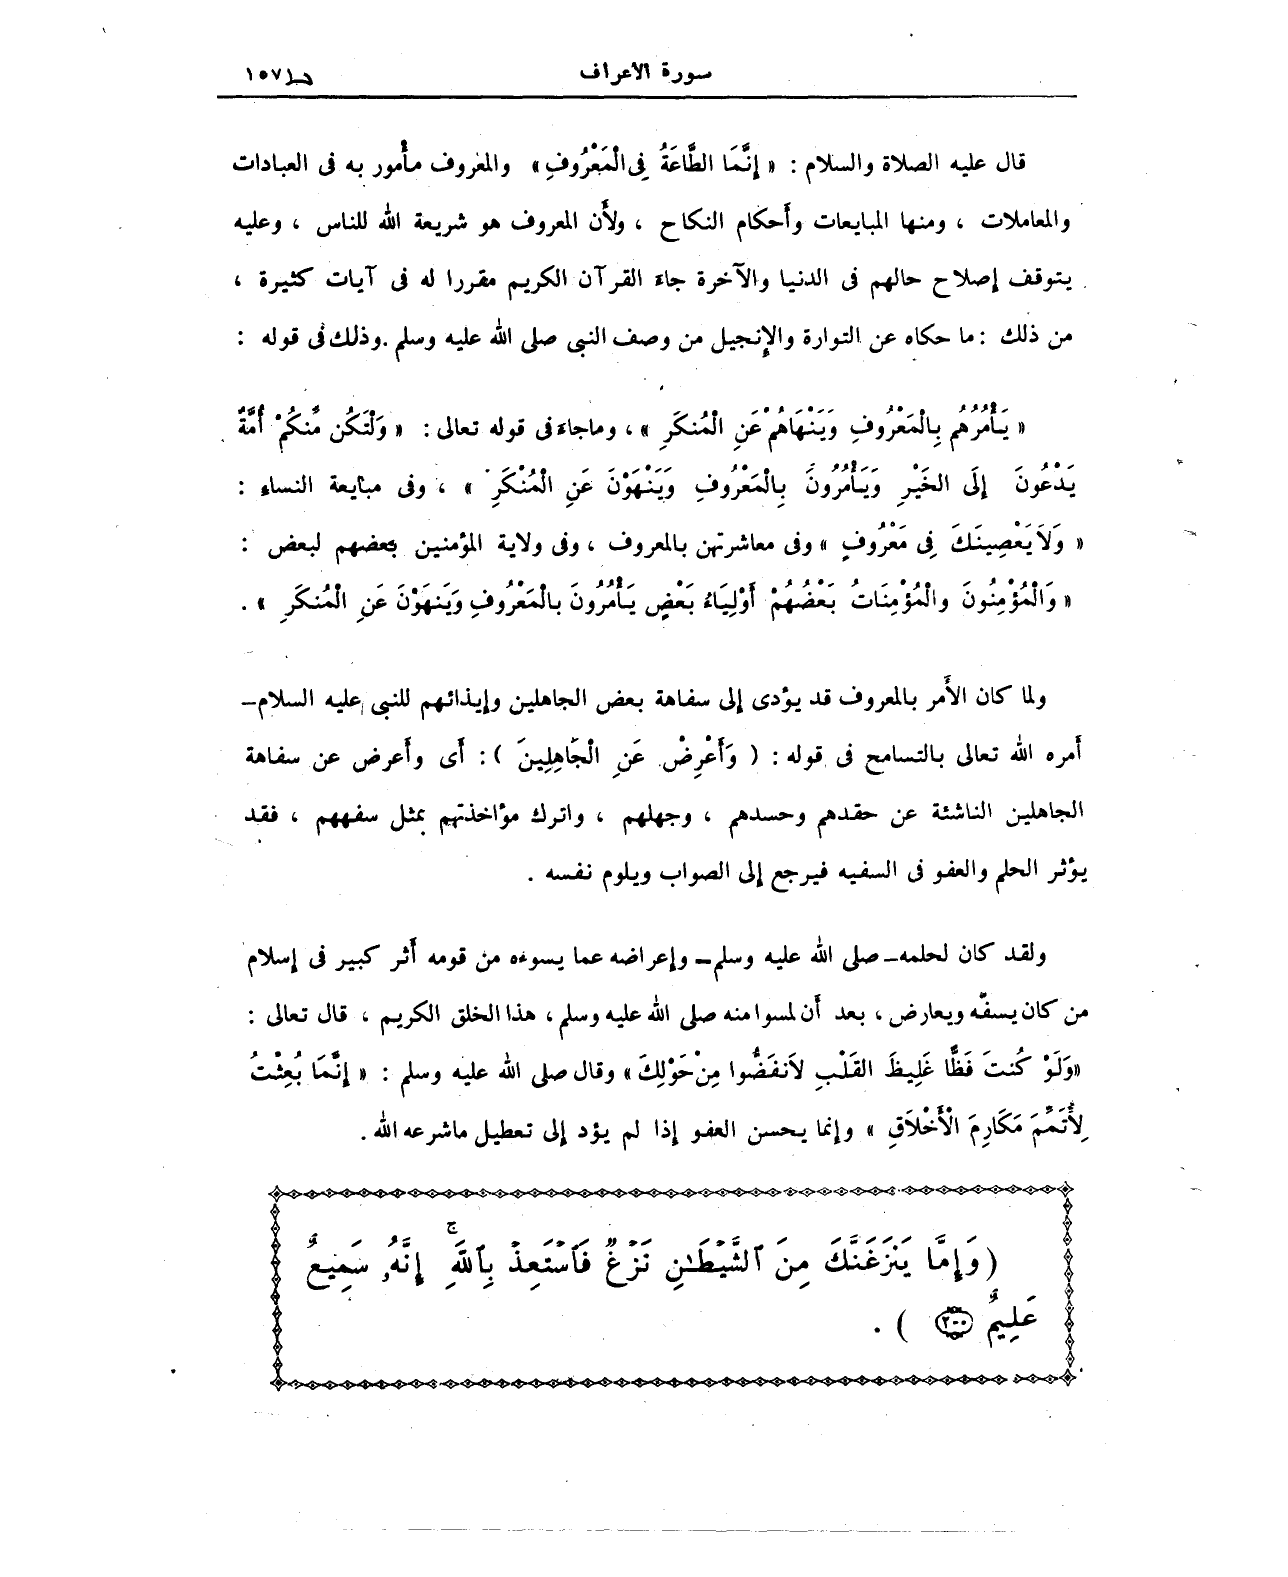 سورة الأعراف ١٥٧١
قال عليه الصلاة والسلام : « إِنَّمَا الطَّاعَةُ فِى الْمَعْرُوفِ» والمعروف مأْمور به فى العبادات
والمعاملات ، ومنها المبايعات وأَحكام النكاح ، ولأَن المعروف هو شريعة الله للناس ، وعليه
يتوقف إصلاح حالهم فى الدنيا والآخرة جاءَ القرآن الكريم مقررا له فى آيات كثيرة ،
من ذلك : ما حكاه عن التوارة والإنجيل من وصف النبى صلى الله عليه وسلم . وذلك فى قوله :
« يَأْمُرُهُم بِالْمَعْرُوفِ وَيَنْهَاهُمْ عَنِ الْمُنكَرِ » ، وماجاءَ فى قوله تعالى : « وَلْتَكُن مِّنكُمْ أُمَّةٌ
يَدْعُونَ إِلَى الخَيْرِ وَيَأْمُرُونَ بِالْمَعْرُوفِ وَيَنْهَوْنَ عَنِ الْمُنْكَرِ » ، وفى مبايعة النساءِ :
« وَلَا يَعْصِينَكَ فِى مَعْرُوفٍ » وفى معاشرتهن بالمعروف ، وفى ولاية المؤمنين بعضهم لبعض :
« وَالْمُؤْمِنُونَ والْمُؤْمِنَاتُ بَعْضُهُمْ أَوْلِيَاءُ بَعْضٍ يَأْمُرُونَ بالْمَعْرُوفِ وَيَنهَوْنَ عَنِ الْمُنكَرِ » .
ولما كان الأَمر بالمعروف قد يؤدى إلى سفاهة بعض الجاهلين وإيذائهم للنبى عليه السلام ـ
أَمره الله تعالى بالتسامح فى قوله : ( وَأَعْرِضْ عَنِ الْجَاهِلِينَ ) : أَى وأَعرض عن سفاهة
الجاهلين الناشئة عن حقدهم وحسدهم ، وجهلهم ، واترك مؤاخذتهم بمثل سفههم ، فقد
يؤثر الحلم والعفو فى السفيه فيرجع إلى الصواب ويلوم نفسه .
ولقد كان لحلمه ـ صلى الله عليه وسلم ـ وإعراضه عما يسوءه من قومه أَثر كبير فى إسلام
من كان يسفّه ويعارض ، بعد أَن لمسوا منه صلى الله عليه وسلم ، هذا الخلق الكريم ، قال تعالى :
«وَلَوْ كُنتَ فَظًّا غَلِيظَ القَلْبِ لاَنفَضُّوا مِنْ حَوْلِكَ» وقال صلى الله عليه وسلم : « إِنَّمَا بُعِثْتُ
لِأُتَمِّمَ مَكَارِمَ الْأَخْلَاقِ » وإنما يحسن العفو إذا لم يؤد إلى تعطيل ماشرعه الله .
(وَإِمَّا يَنزَغَنَّكَ مِنَ ٱلشَّيْطَٰنِ نَزْغٌ فَٱسْتَعِذْ بِٱللَّهِ ۚ إِنَّهُۥ سَمِيعٌ
عَلِيمٌ ٢٠٠ ) .